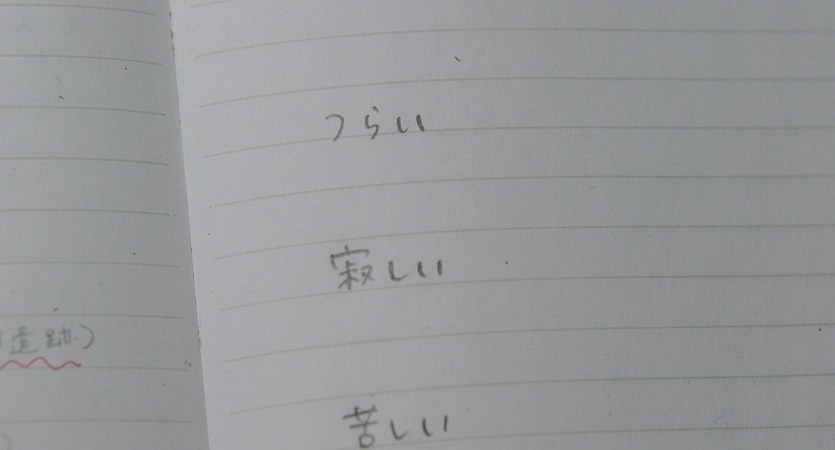 遺跡)
つらい
寂しい
苦しい